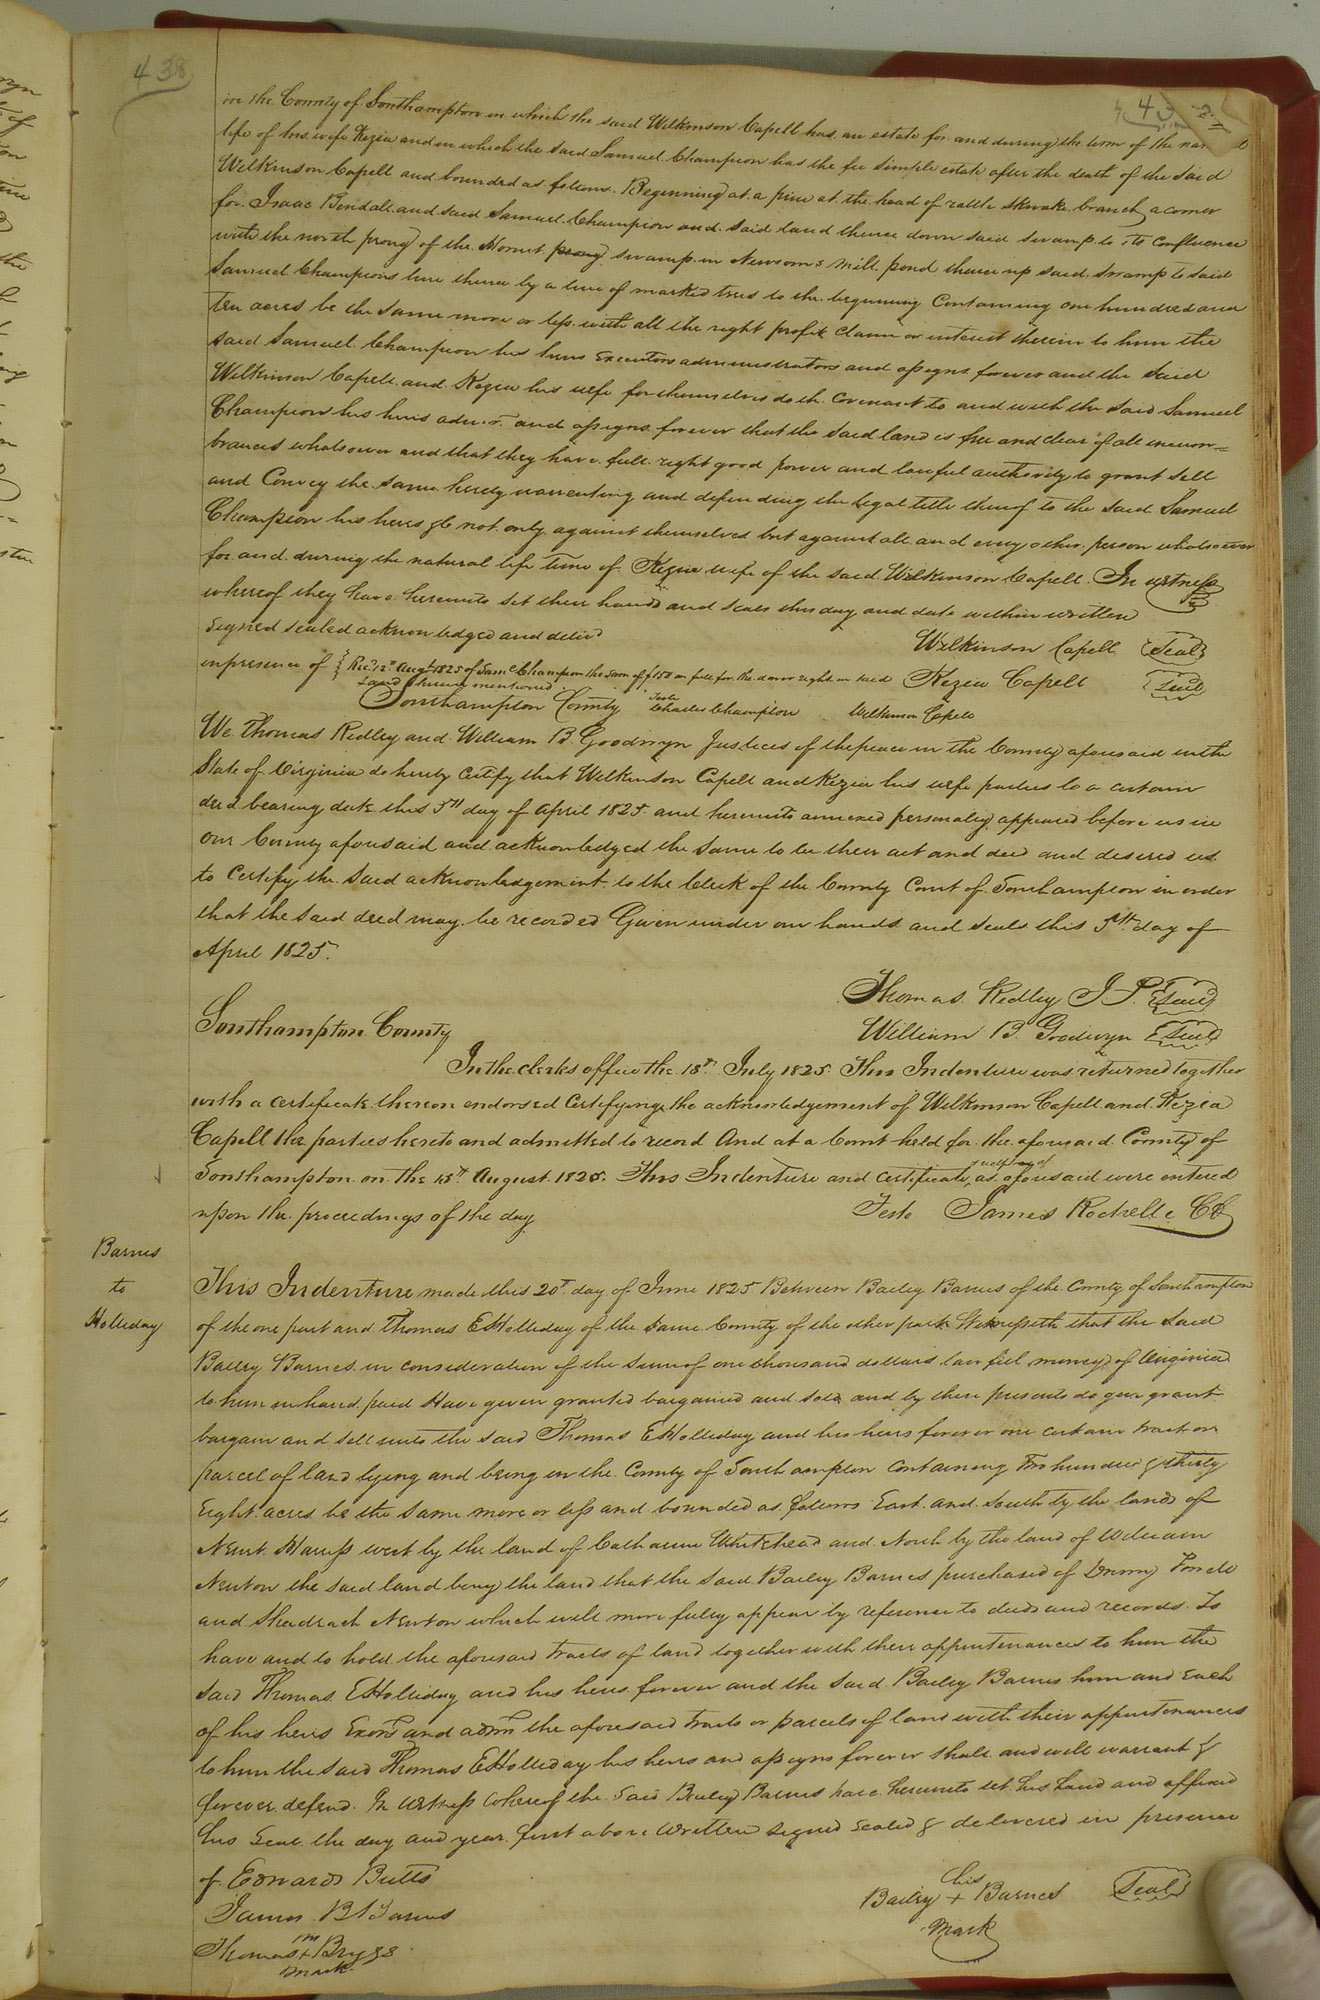 438
in the County of Southampton in which the said Wilkinson Capell has an estate for and during the term of the natural
life of his wife Kezia and in which the said Samuel Champion has the fee simple estate after the death of the said
Wilkinson Capell and bounded as follows. Beginning at a pine at the head of rattle sknake branch a corner
for Isaac Bendall and said Samuel Champion and said land thence down said swamp to its confluence
with the north prong of the Hornet prong swamp in Newsoms mill pond thence up said swamp to said
Samuel Champions line thence by a line of marked trees to the beginning Containing one hundred and
ten acres be the same more or less with all the right profit claim or interest therein to him the
said Samuel Champion his heirs executors administrators and assigns forever and the said
Wilkinson Capell and Kezia his wife for themselves doth covenant to and with the said Samuel
Champion his heirs adm. and assigns forever that the said land is free and clear of all incum=
brances whatsoever and that they have full right good power and lawful authority to grant sell
and Convey the same hereby warrenting and defending the legal title thereof to the said Samuel
Champion his heirs &c not only against themselves but against all and every other person whatsoever
for and during the natural life time of Kezia wife of the said Wilkinson Capell. In witness
whereof they have hereunto set their hands and seals this day and date within written
Signed sealed acknowledged and delivd
Wilkinson Capell Seal
in presence of Rec'd 12th Augt 1825 of Saml Champion the sum of $150 in full for the dower right in said Kezia Capell Seal
Land therein mentioned
Teste
Southampton County Charles Champion Wilkinson Capell
We Thomas Ridley and William B. Goodwyn Justices of the peace in the County aforesaid in the
State of Virginia do hereby certify that Wilkinson Capell and Kezia his wife parties to a certain
deed bearing date this 5th day of April 1825 and hereunto annexed personally appeared before us in
our County aforesaid and acknowledged the same to be their act and deed and desired us
to certify the said acknowledgement to the Clerk of the County Court of Southampton in order
that the said deed may be recorded Given under our hands and seals this 5th day of
April 1825.
Thomas Ridley J. P. Seal
Southampton County
William B. Goodwyn Seal
In the clerks office the 18th July 1825 This Indenture was returned together
with a certificate thereon endorsed Certifying the acknowledgement of Wilkinson Capell and Kezia
Capell the parties hereto and admitted to record And at a Court held for the aforesaid County of
Southampton on the 15th August 1825. This Indenture and certificate as aforesaid were entered
upon the proceedings of the day
Teste James Rochelle CC
Barnes
to
Holliday
This Indenture made this 20th day of June 1825 Between Bailey Barnes of the County of Southampton
of the one part and Thomas E Holliday of the same County of the other part Witnesseth that the said
Bailey Barnes in consideration of the sum of one thousand dollars lawfull money of Virginia
to him in hand paid Have given granted bargained and sold and by these presents do give grant
bargain and sell unto the said Thomas E Holliday and his heirs forever one certain tract or
parcel of land lying and being in the County of Southampton containing Two hundred & thirty
Eight acres be the same more or less and bounded as follows East and South by the lands of
Newt. Harriss west by the land of Catharine Whitehead and North by the land of William
Newton the said land being the land that the said Bailey Barnes purchased of Drewry
and Shadrach Newton which will more fully appear by reference to deeds and records. To
have and to hold the aforesaid tracts of land together with their appurtenances to him the
said Thomas E Holliday and his heirs forever and the said Bailey Barnes him and each
of his heirs Exors and admrs the aforesaid tracts or parcels of land with their appurtenances
to him the said Thomas E Holliday his heirs and assigns forever shall and will warrant &
forever defend. In witness whereof the said Bailey Barnes have hereunto set his hand and affixed
his Seal the day and year first above written Signed Sealed & delivered in presence
of Edward Butts
his
Bailey + Barnes Seal
mark
James B Barnes
Thomas + Bryggs
mark